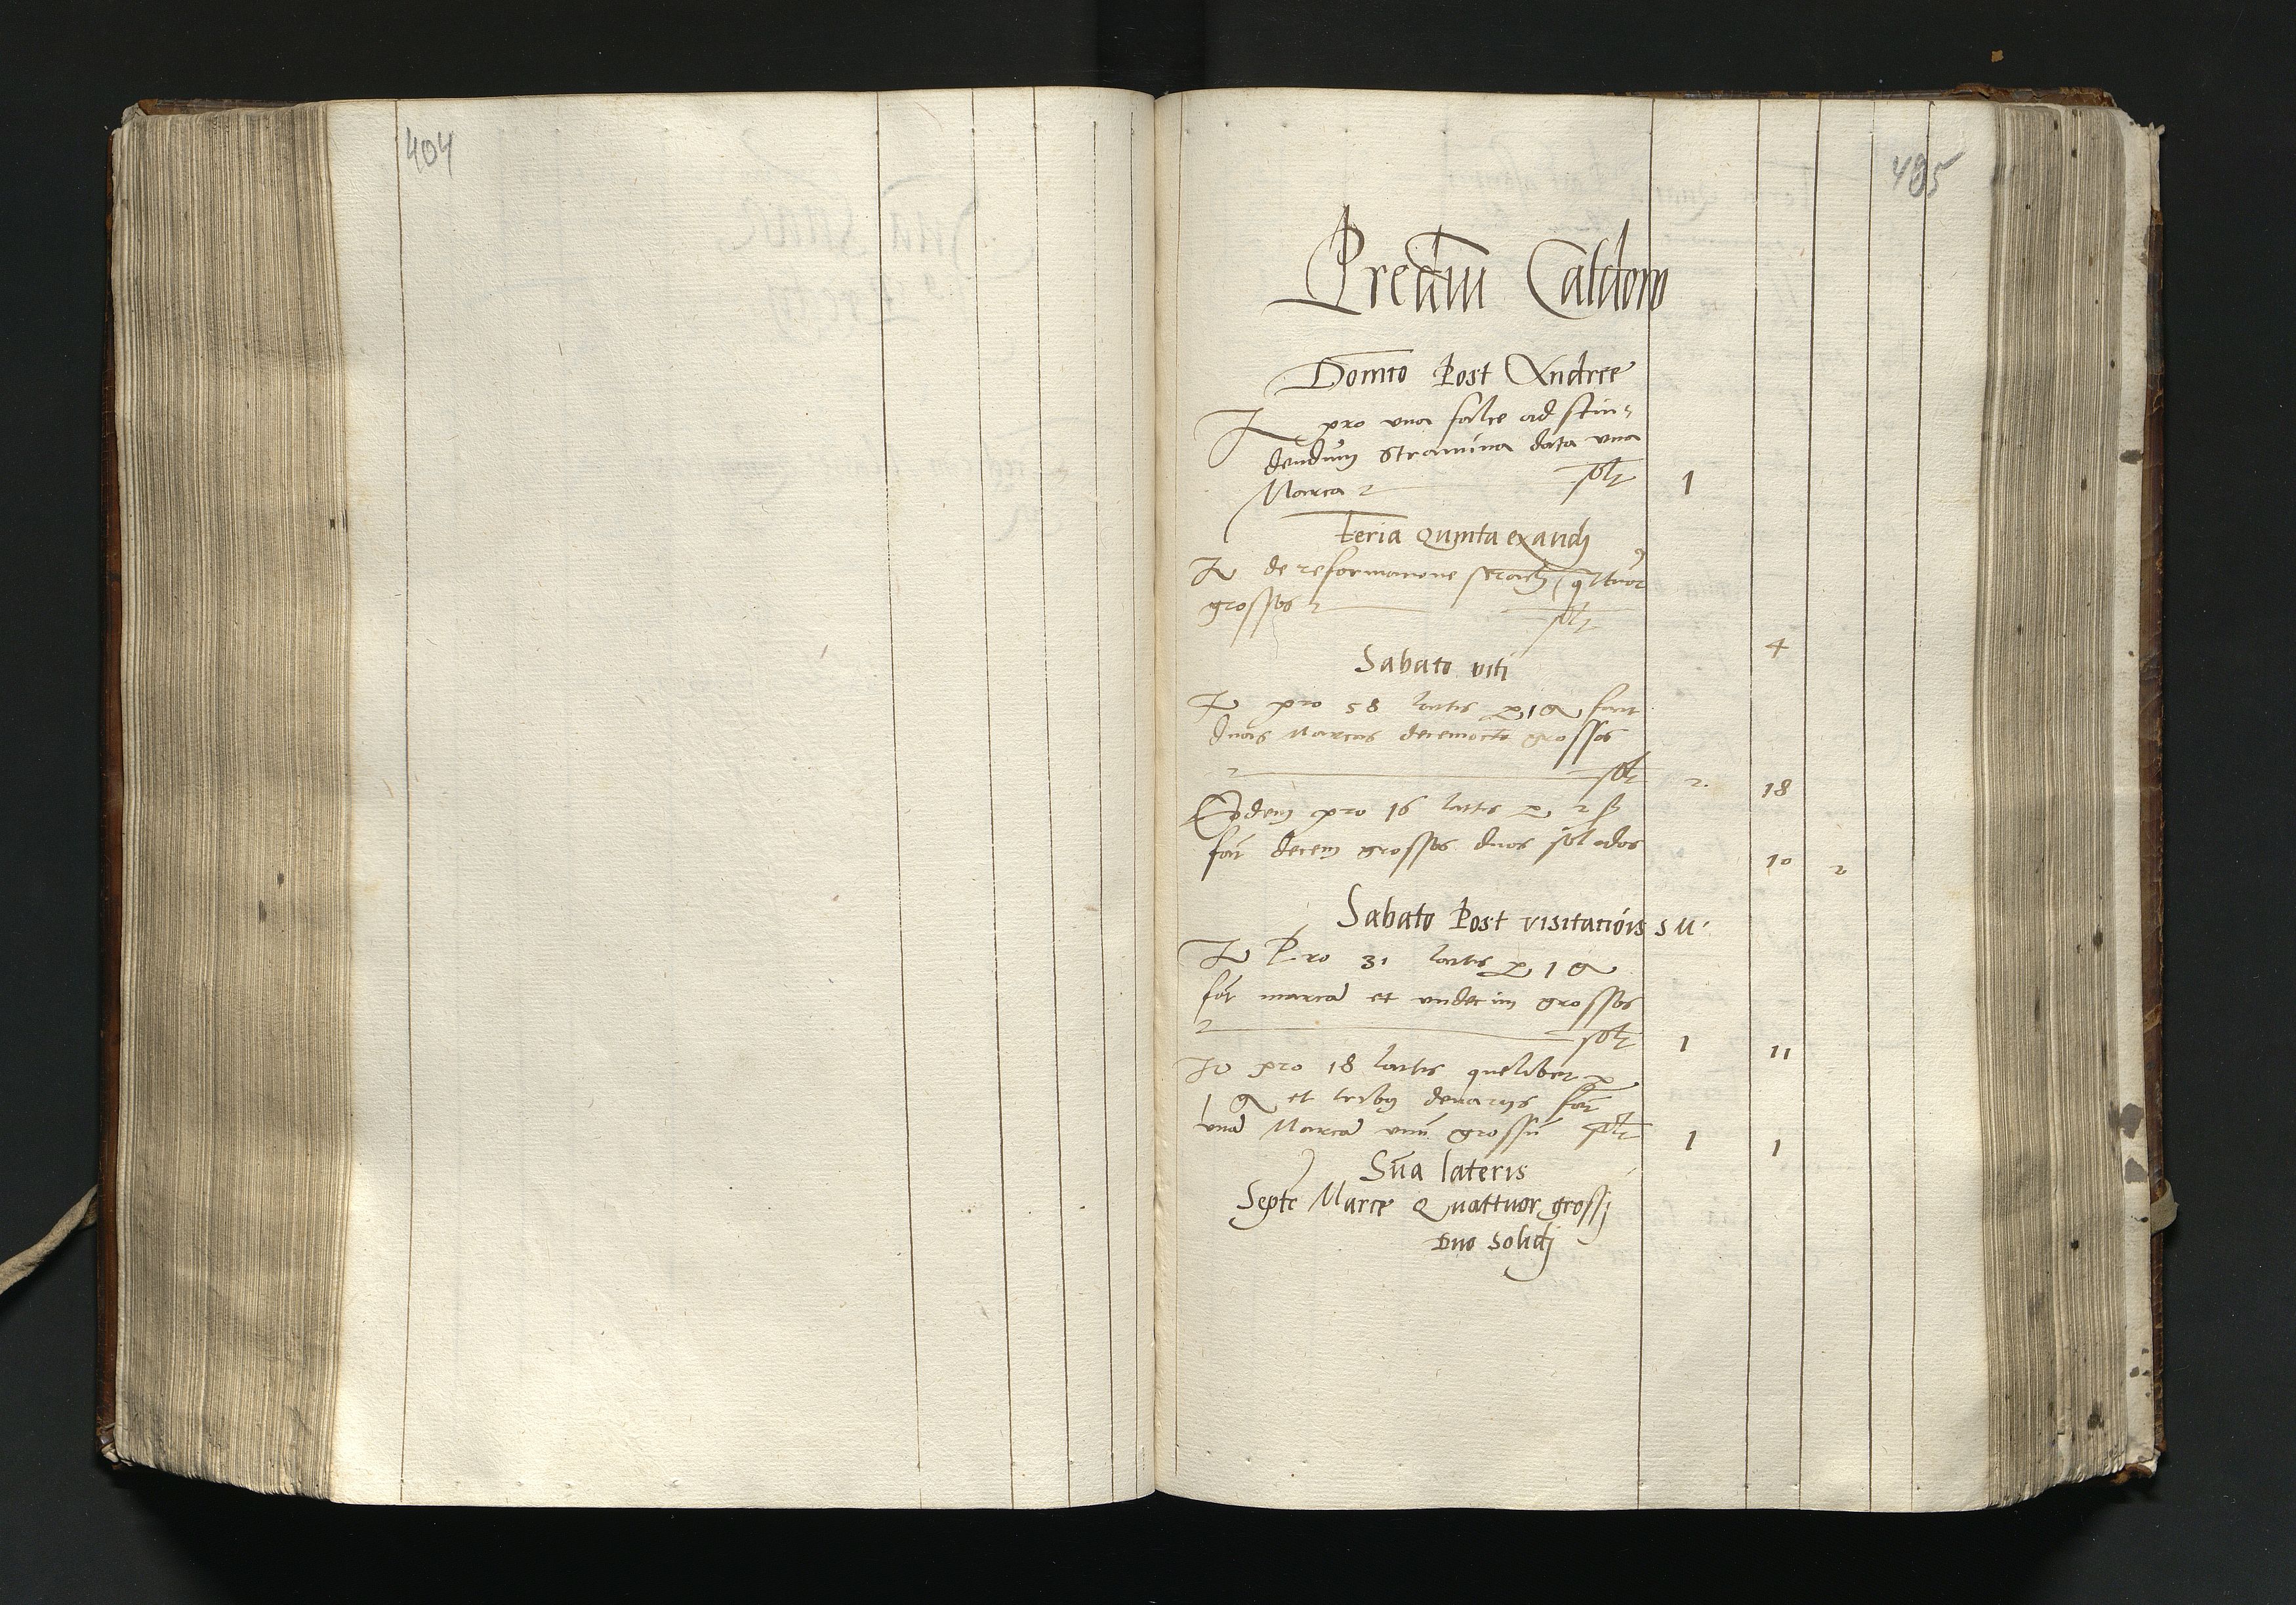 404
405
Prediu Caldow
Domio Post Andree
It pro una falce ad scin-
dendum stramina data una
Marca solt 1
Feria Quinta exaudj
It de reformacione qttuor
grossos solt
4
Sabato viti
It pro 58 lattis p 1 g fint
duas Marcas decemocto grossos
solt 2 18
Eodem pro 16 lattis p 2 β
fat decem grossos duos solidos
10 2
Sabato Post visitaciois s M
It Pro 31 lattis p 1 g
fat marca et undecim grossos
solt 1 11
It pro 18 lattis quelibet p
1 g et tribus denarijs fat
una Marca unu grossu solt 1 1
Sua lateris
Septe Marce Quattuor grossj
Duo Solidj